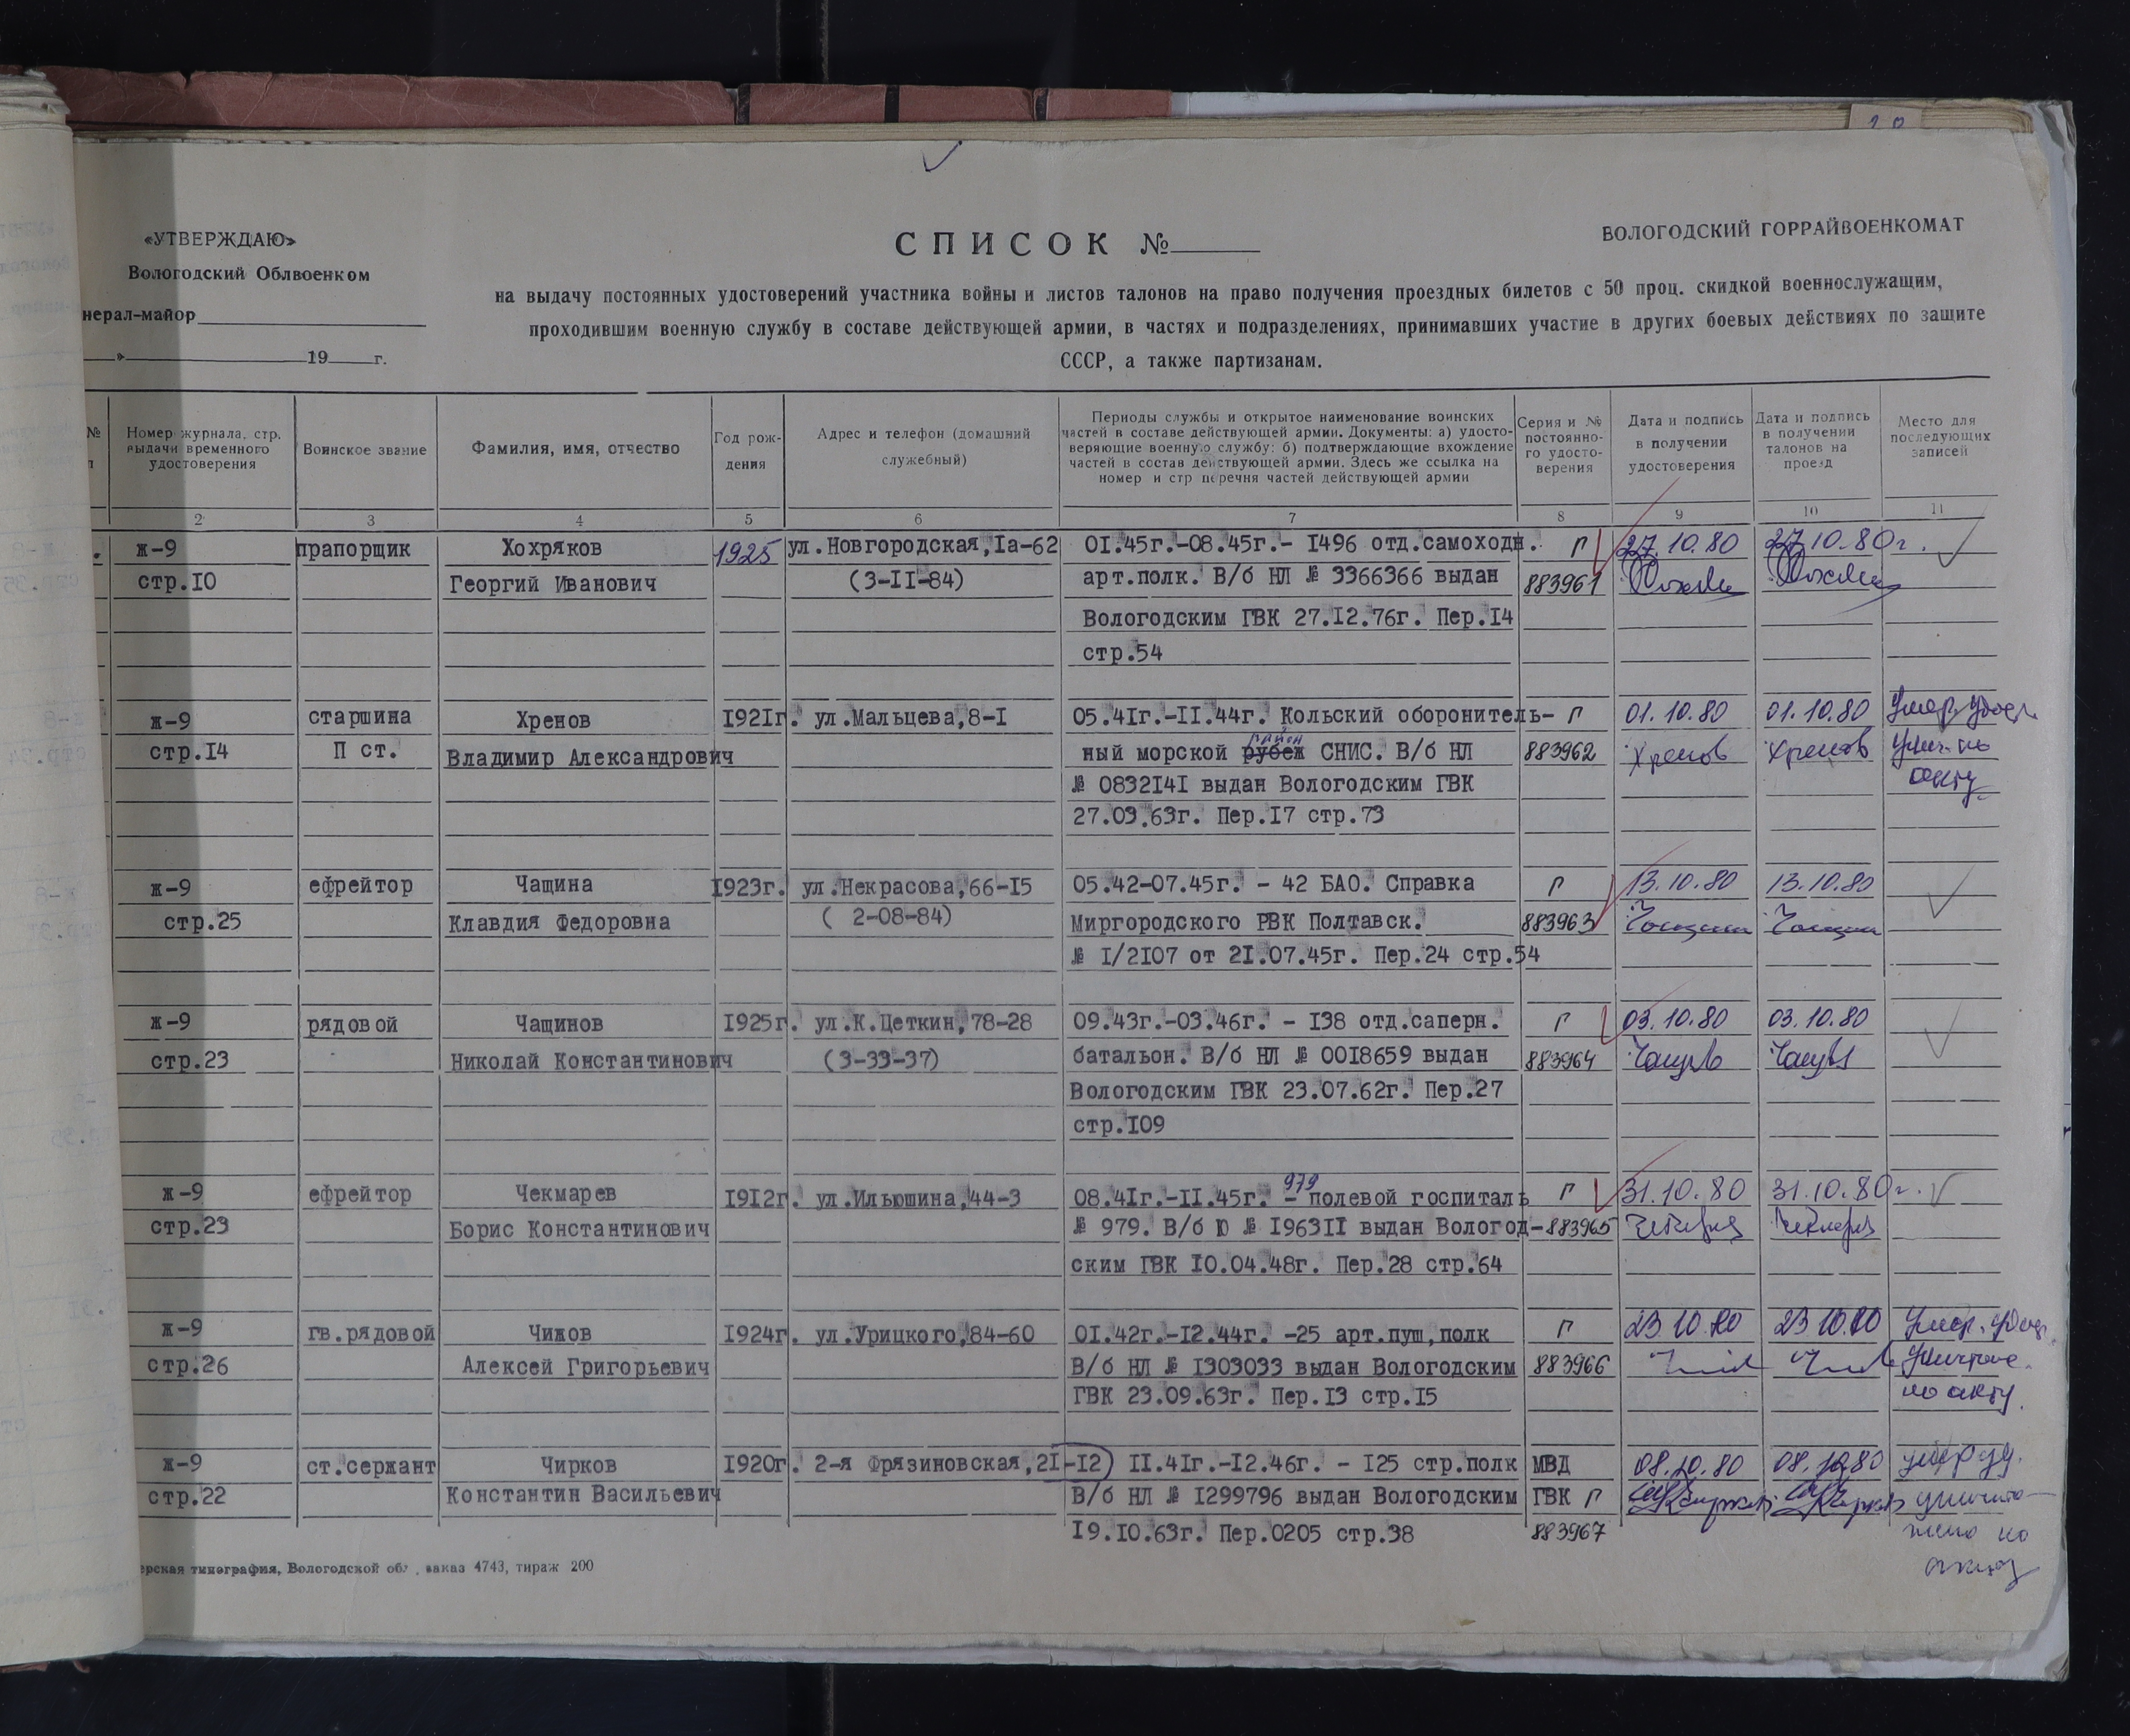 «УТВЕРЖДАЮ»
Вологодский Облвоенком
нерал-майор
» 19 г.
СПИСОК №
ВОЛОГОДСКИЙ ГОРРАЙВОЕНКОМАТ
на выдачу постоянных удостоверений участника войны и листов талонов на право получения проездных билетов с 50 проц. скидкой военнослужащим,
проходившим военную службу в составе действующей армии, в частях и подразделениях, принимавших участие в других боевых действиях по защите
СССР, а также партизанам.
№ п
Номер журнала, стр. выдачи временного удостоверения
Воинское звание
Фамилия, имя, отчество
Год рождения
Адрес и телефон (домашний служебный)
Периоды службы и открытое наименование воинских
частей в составе действующей армии. Документы: а) удосто-
веряющие военную службу; б) подтверждающие вхождение
частей в состав действующей армии. Здесь же ссылка на
номер и стр перечня частей действующей армии
Серия и № постоянно-го удосто-верения
Дата и подпись в получении удостоверения
Дата и подпись в получении талонов на проезд
Место для последующих записей
2 3 4 5 6 7 8 9 10 11
ж-9 прапорщик Хохряков 1925 ул.Новгородская,Iа-62 0I.45г.-08.45г.- I496 отд.самоходн. Г 27.10.80 27.10.80г.
стр.I0 Георгий Иванович (3-II-84) арт.полк. В/б НЛ № 3366366 выдан 883961
Вологодским ГВК 27.I2.76г. Пер.I4
стр.54
ж-9 старшина Хренов I92Iг. ул.Мальцева,8-I 05.4Iг.-II.44г. Кольский оборонитель- Г 01.10.80 01.10.80 Умер, удост.
район
стр.I4 П ст. Владимир Александрович ный морской рубеж СНИС. В/б НЛ 883962 Хренов Хренов унич. по
№ 0832I4I выдан Вологодским ГВК акту
27.03.63г. Пер.I7 стр.73
ж-9 ефрейтор Чащина I923г. ул.Некрасова,66-I5 05.42-07.45г. - 42 БАО. Справка Г 13.10.80 13.10.80
стр.25 Клавдия Федоровна ( 2-08-84) Миргородского РВК Полтавск. 883963
№ I/2I07 от 2I.07.45г. Пер.24 стр.54
ж-9 рядовой Чащинов I925г. ул.К.Цеткин,78-28 09.43г.-03.46г. - I38 отд.саперн. Г 03.10.80 03.10.80
стр.23 Николай Константинович (3-33-37) батальон. В/б НЛ № 00I8659 выдан 883964
Вологодским ГВК 23.07.62г. Пер.27
стр.I09
979
ж-9 ефрейтор Чекмарев I9I2г. ул.Ильюшина,44-3 08.4Iг.-II.45г. - полевой госпиталь Г 31.10.80 31.10.80г.
стр.23 Борис Константинович № 979. В/б Ю № I963II выдан Вологод- 883965
ским ГВК I0.04.48г. Пер.28 стр.64
ж-9 гв.рядовой Чижов I924г. ул.Урицкого,84-60 0I.42г.-I2.44г. -25 арт.пуш,полк Г 23.10.80 23.10.80 Умер. удост.
стр.26 Алексей Григорьевич В/б НЛ № I303033 выдан Вологодским 883966 уничтоже.
ГВК 23.09.63г. Пер.I3 стр.I5 по акту.
ж-9 ст.сержант Чирков I920г. 2-я Фрязиновская,2I-I2 II.4Iг.-I2.46г. - I25 стр.полк МВД 08.10.80 08.10.80 умер уд.
стр.22 Константин Васильевич В/б НЛ № I299796 выдан Вологодским ГВК Г уничто-
I9.I0.63г. Пер.0205 стр.38 883967 жено по
акту
ерская типография, Вологодской обл., заказ 4743, тираж 200